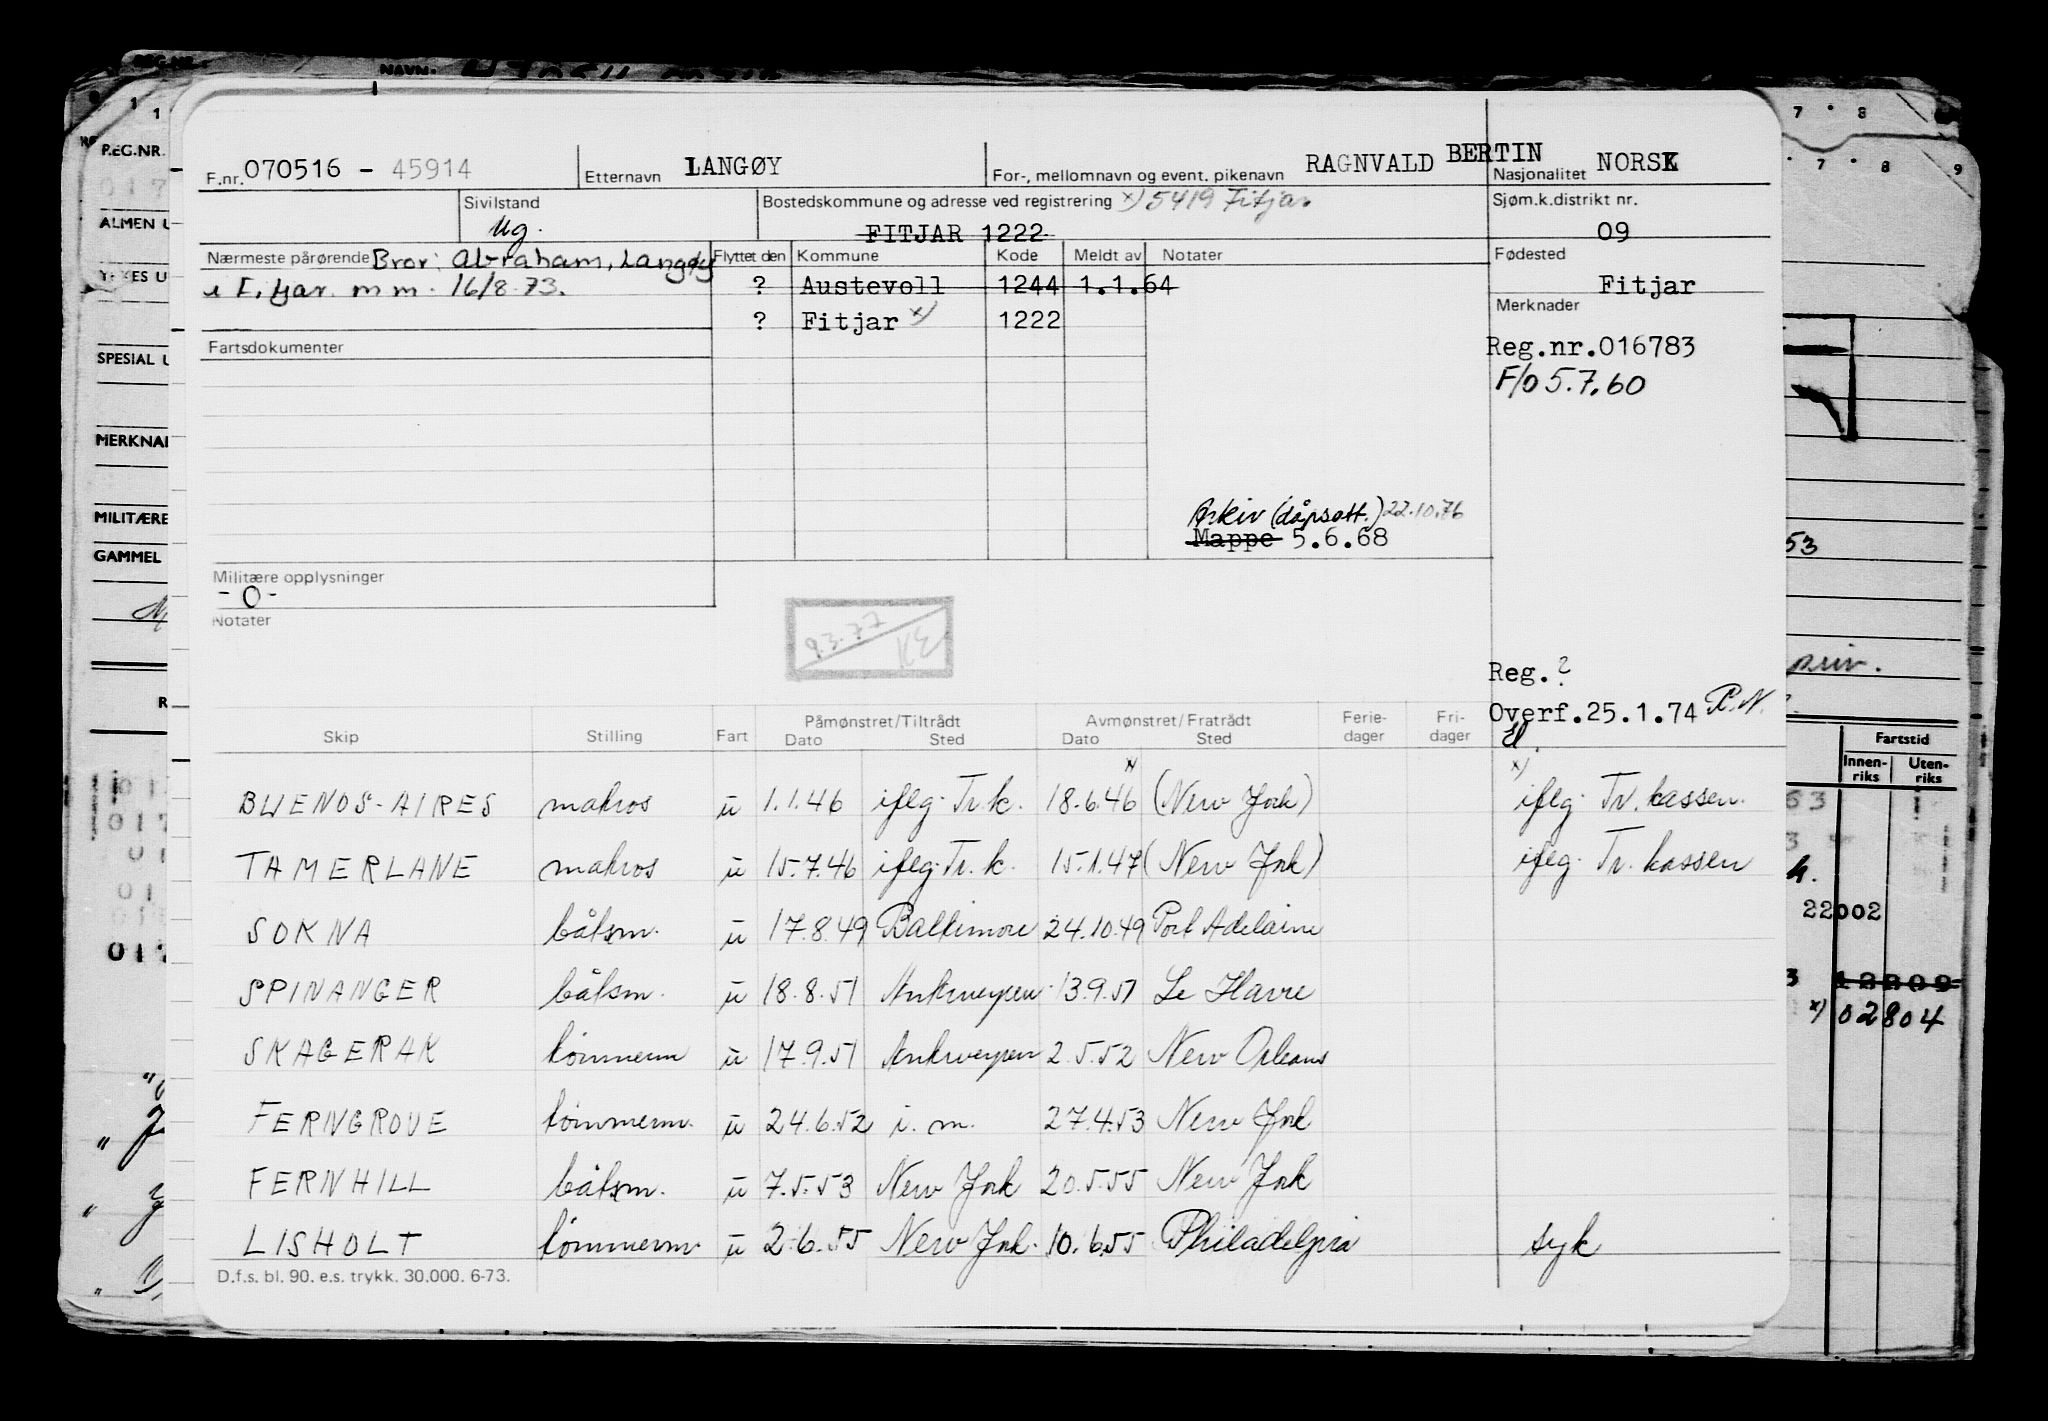 F.nr. 070516 - 45914 Etternavn LANGØY For-, mellomnavn og event. pikenavn RAGNVALD BERTIN Nasjonalitet NORSK
Sivilstand Ug. Bostedskommune og adresse ved registrering x) 5419 Fitjar Sjøm.k.distrikt nr.
FITJAR 1222 09
Nærmeste pårørende Bror: Abraham Langøy Flyttet den Kommune Kode Meldt av Notater Fødested
mm. 16/8-73. ? Austevoll 1244 1.1.64 Fitjar
? Fitjar x) 1222 Merknader
Fartsdokumenter Reg.nr.016783
F/o 5.7.60
Arkiv (dåpsatt.) 22.10.76
Mappe 5.6.68
Militære opplysninger
- O -
Notater
9.3.77 KE
Reg.?
Overf.25.1.74 P.N.
Skip Stilling Fart Påmønstret/Tiltrådt Dato Sted Avmønstret/Fratrådt Dato Sted Ferie-dager Fri-dager
BUENOS-AIRES matros u 1.1.46 iflg. Tr.k. 18.6.46 x (New York) x) iflg. Tr. kassen.
TAMERLANE matros u 15.7.46 iflg. Tr. k. 15.1.47 (New York) iflg. Tr. kassen
SOKNA båtsm. u 17.8.49 Baltimore 24.10.49 Port Adelaine
SPINANGER båtsm. u 18.8.51 Antwerpen 13.9.51 Le Havre
SKAGERAK tømmerm u 17.9.51 Antwerpen 2.5.52 New Orleans
FERNGROVE tømmerm. u 24.6.52 i. m. 27.4.53 New York
FERNHILL båtsm. u 7.5.53 New York 20.5.55 New York
LISHOLT tømmerm. u 2.6.55 New York. 10.6.55 Philadelpia syk
D.f.s. bl. 90. e.s. trykk. 30.000. 6-73.
REG.NR.
NAVN:
REG.NR.
ALMEN U
SPESIAL U
MERKNAD
MILITÆRE
GAMMEL
7 8
7 8 9
53
priv.
Fartstid
Innen-riks Uten-riks
22002
12809
x) 02804